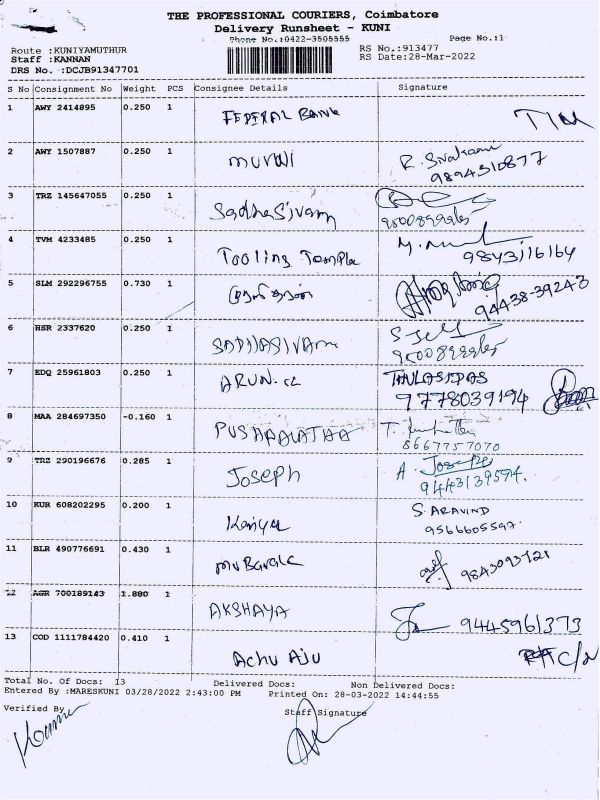 THE PROFESSIONAL COURIERS, Coimbatore
Delivery Runsheet - KUNI
Phone No.:0422-3505555 Page No.:1
Route :KUNIYAMUTHUR RS No.:913477
Staff :KANNAN RS Date:28-Mar-2022
DRS No. :DCJB91347701
S No Consignment No Weight PCS Consignee Details Signature
1 AWY 2414895 0.250 1 FEDERAL BANK
2 AWY 1507887 0.250 1 MURUI R. Sivakami
9894310877
3 TRZ 145647055 0.250 1 Sadhasivam
4 TVM 4233485 0.250 1 Tooling Temple 9843116164
5 SLM 292296755 0.730 1 94438-39243
6 HSR 2337620 0.250 1 SADHASIVAm
7 EDQ 25961803 0.250 1 ARUN. THULASIDAS
9778039194
8 MAA 284697350 -0.160 1 PUSHPALATHA T.
8667757070
9 TRZ 290196676 0.285 1 Joseph A. Joseph
9443139594.
10 KUR 608202295 0.200 1 S. ARAVIND
9566605597.
11 BLR 490776691 0.430 1 MuBarak 9843093121
12 AGR 700189143 1.880 1 AKSHAYA 9445961373
13 COD 1111784420 0.410 1 Achu AJu
Total No. Of Docs: 13 Delivered Docs: Non Delivered Docs:
Entered By :MARESKUNI 03/28/2022 2:43:00 PM Printed On: 28-03-2022 14:44:55
Verified By Staff Signature